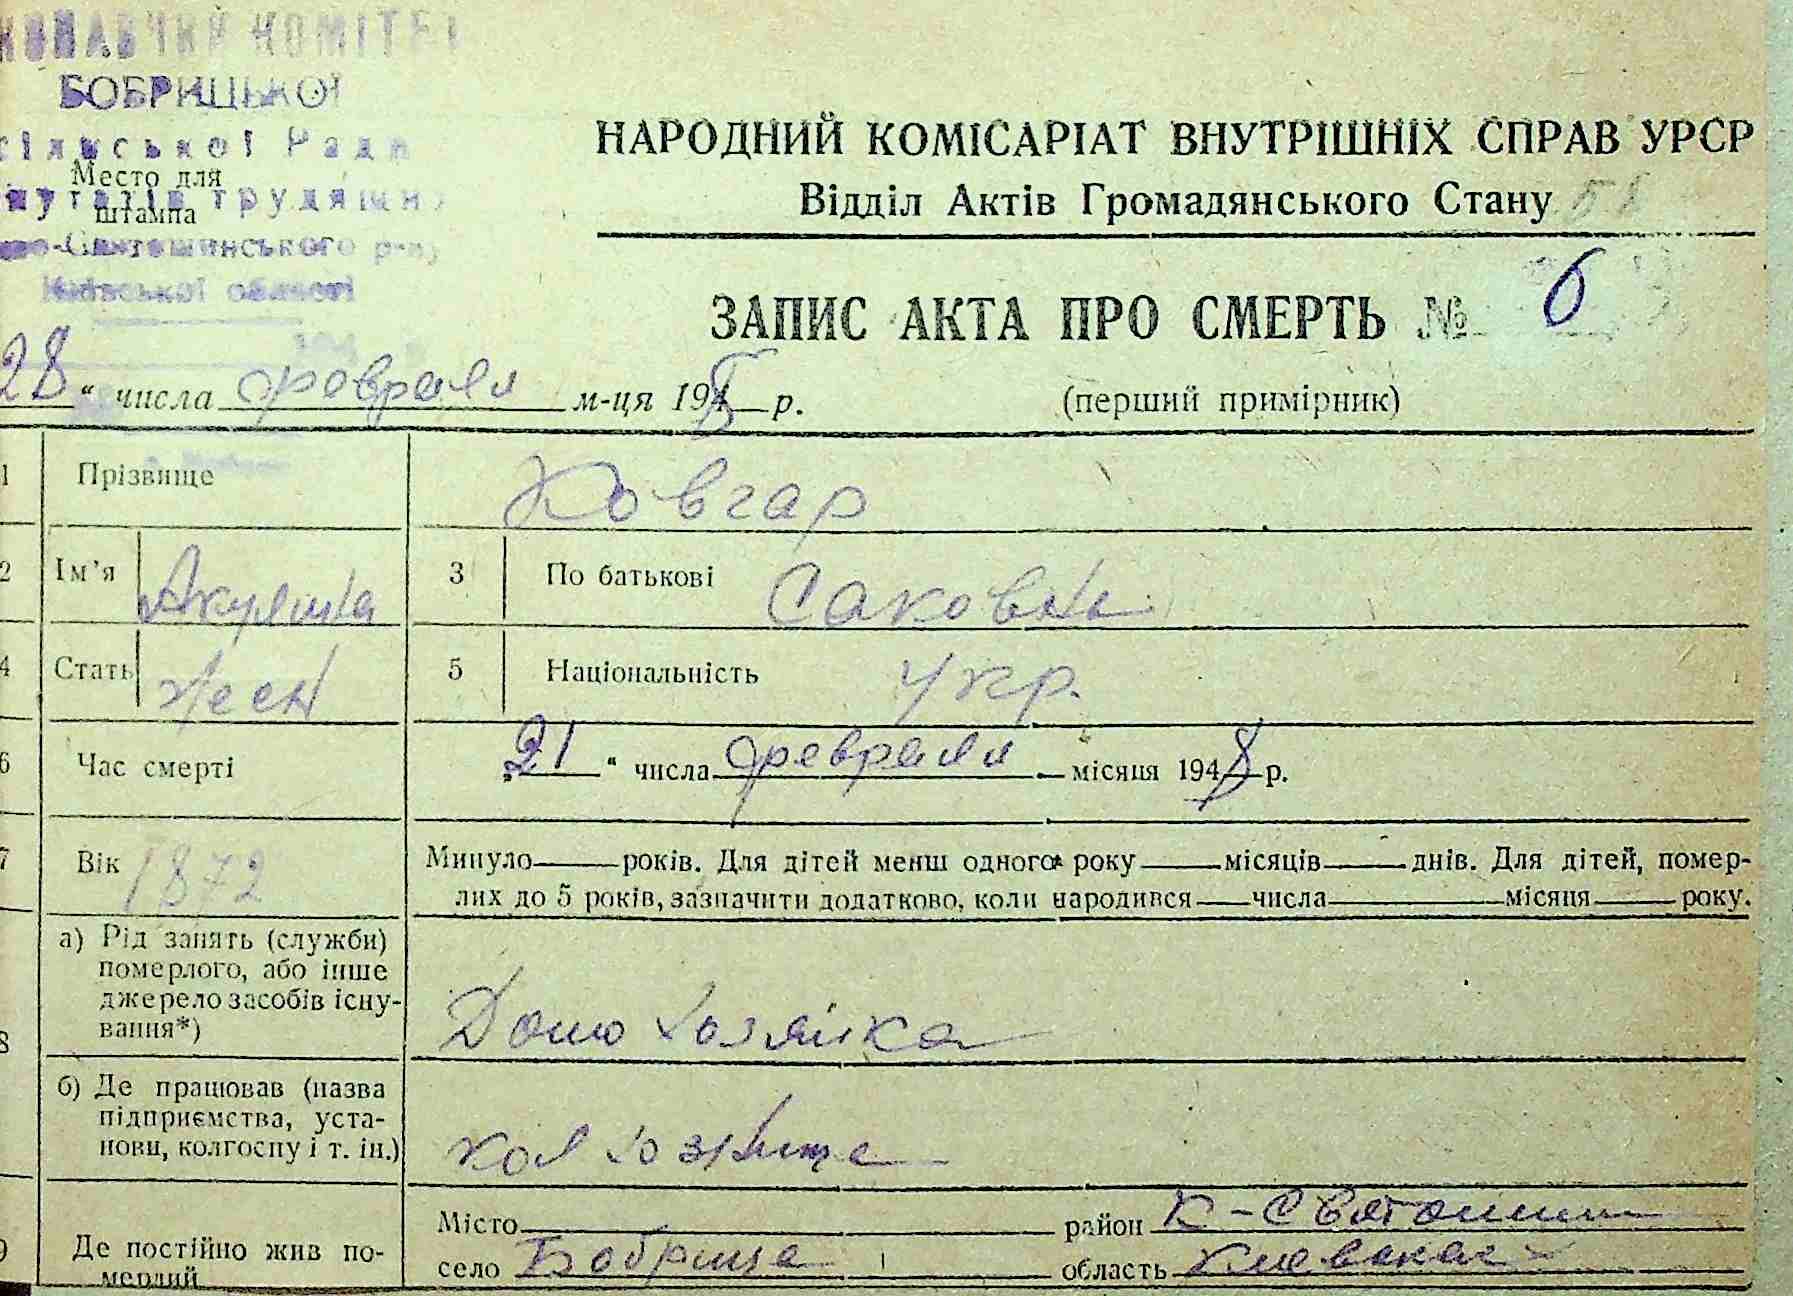 КОНАВЧИЙ КОМІТЕТ
БОБРИЦЬКОЇ
сільської Ради
Место для
путатів трудящих
штампа
во-Святошинського р-ну
Київської області
НАРОДНИЙ КОМІСАРІАТ ВНУТРІШНІХ СПРАВ УРСР
Відділ Актів Громадянського Стану 58
ЗАПИС АКТА ПРО СМЕРТЬ № 6
28 " числа февраля м-ця 1948 р.
(перший примірник)
1 Прізвище Ковгар
2 Ім'я Акулина 3 По батькові Саковна
4 Стать жен 5 Національність Укр.
6 Час смерті „21 " числа февраля місяця 1948 р.
7 Вік 1872 Минуло років. Для дітей менш одного року місяців днів. Для дітей, помер-
лих до 5 років, зазначити додатково, коли народився числа місяця року.
8 а) Рід занять (служби)
померлого, або інше
джерело засобів існу-
вання*)
Домохозяйка
б) Де працював (назва
підприємства, уста-
нови, колгоспу і т. ін.)
9 Де постійно жив по-
мерлий
Місто район К-Святошин
село Бобрица область Киевская